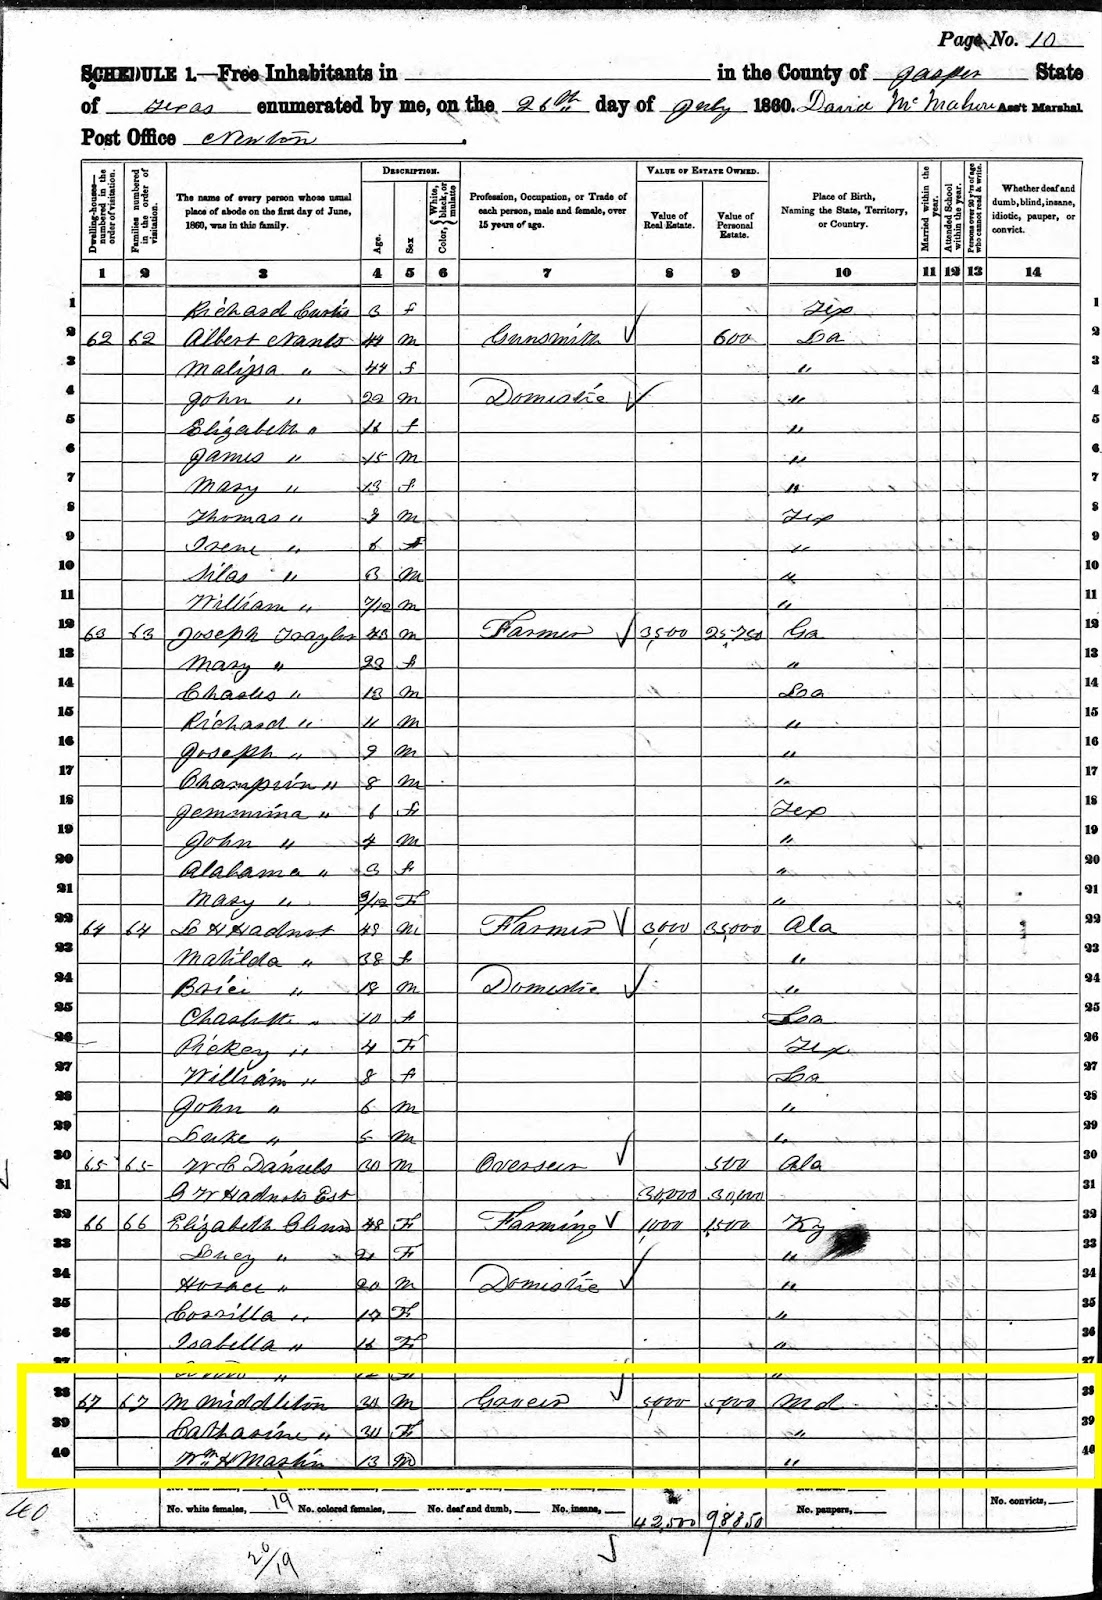 Page No. 10
SCHEDULE 1.—Free Inhabitants in in the County of Jasper State
of Texas enumerated by me, on the 26th day of July 1860. David McMahon Ass't Marshal
Post Office Newton.
Dwelling-houses—numbered in the order of visitation.
Families numbered in the order of visitation.
The name of every person whose usual place of abode on the first day of June, 1860, was in this family.
DESCRIPTION.
Age.
Sex
Color, { White, black, or mulatto
Profession, Occupation, or Trade of each person, male and female, over 15 years of age.
VALUE OF ESTATE OWNED.
Value of Real Estate.
Value of Personal Estate.
Place of Birth, Naming the State, Territory, or Country.
Married within the year.
Attended School within the year.
Persons over 20 y'rs of age who cannot read & write.
Whether deaf and dumb, blind, insane, idiotic, pauper, or convict.
1 2 3 4 5 6 7 8 9 10 11 12 13 14
1 Richard Curtis 3 f Tex 1
2 62 62 Albert Nants 44 m Gunsmith 600 La 2
3 Malissa " 44 f " 3
4 John " 22 m Domestic " 4
5 Elizabeth " 16 f " 5
6 James " 15 m " 6
7 Mary " 13 f " 7
8 Thomas " 9 m Tex 8
9 Irene " 6 f " 9
10 Silas " 3 m " 10
11 William " 7/12 m " 11
12 63 63 Joseph Traylor 43 m Farmer 3,500 25,750 Ga 12
13 Mary " 23 f " 13
14 Charles " 13 m La 14
15 Richard " 11 m " 15
16 Joseph " 9 m " 16
17 Champion " 8 m " 17
18 Jemmima " 6 f Tex 18
19 John " 4 m " 19
20 Alabama " 3 f " 20
21 Mary " 9/12 F " 21
22 64 64 Hadnot 48 m Farmer 3,000 35,000 Ala 22
23 Matilda " 38 f " 23
24 " 18 m Domestic " 24
25 Charlotte " 10 f La 25
26 Rickey " 4 F Tex 26
27 William " 8 f La 27
28 John " 6 m " 28
29 Luke " 5 m " 29
30 65 65 W C Daniels 30 m Overseer 500 Ala 30
31 G W Hadnots Est 30,000 30,000 31
32 66 66 Elizabeth Glenn 48 F Farming 1,000 1,500 Ky 32
33 Lucy " 21 F " 33
34 Horace " 20 m Domestic " 34
35 " 17 F " 35
36 Isabella " 16 F " 36
37 " 37
38 67 67 M Middleton 30 m 5,000 5,000 Md 38
39 Catharine " 30 F " 39
40 Wm H Martin 13 m " 40
No. white females, 19 No. colored females, No. deaf and dumb, No. insane, 42,500 98,850 No. paupers, No. convicts,
20/19